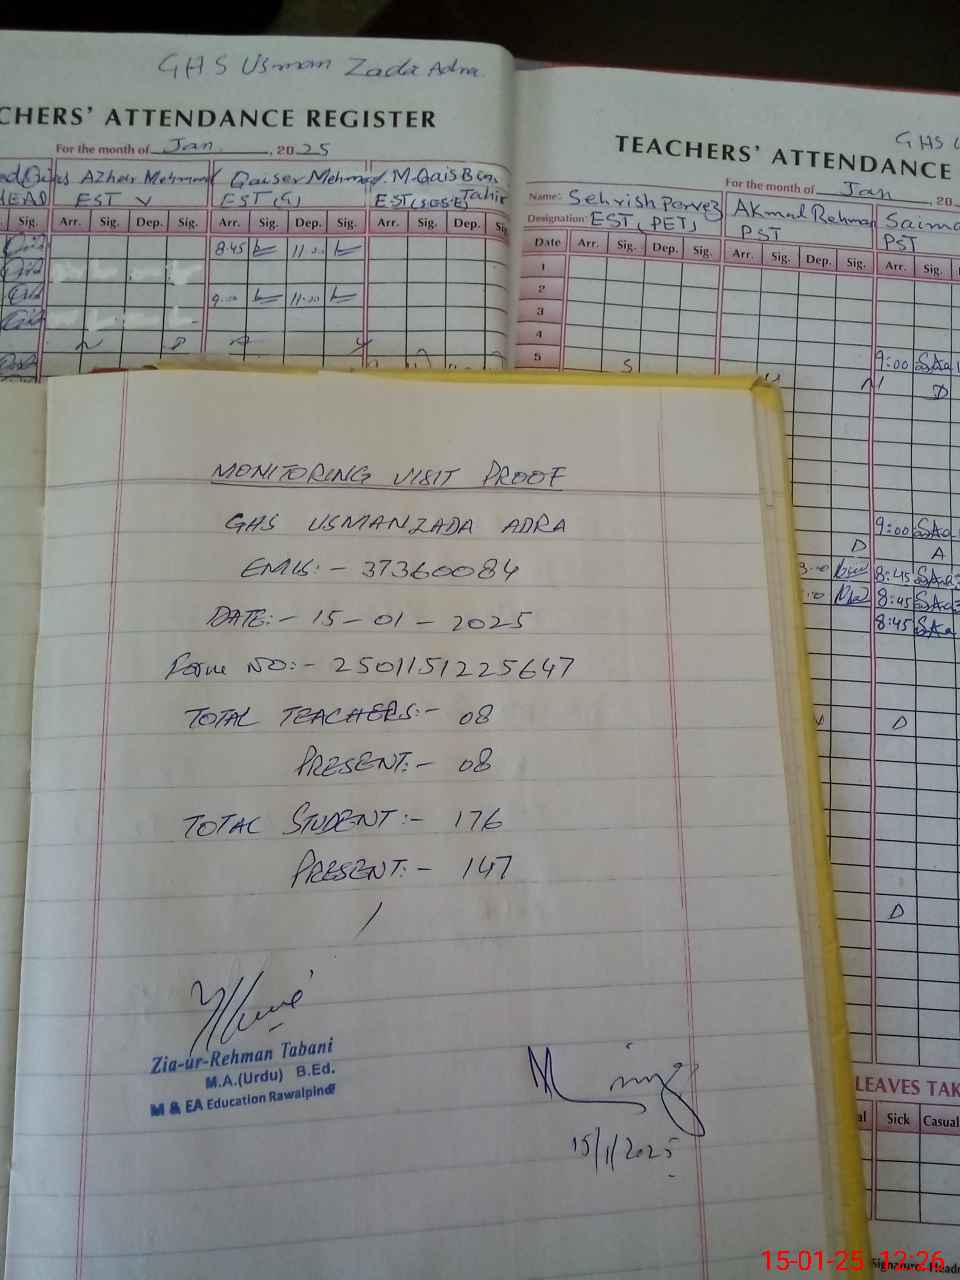 GHS Usman Zada Adra.
CHERS' ATTENDANCE REGISTER
For the month of Jan. , 2025
Azhar Mehmood Qaiser Mehmood M. Qais Bin Tahir
HEAD EST V EST (G) EST (SCSE)
Sig. Arr. Sig. Dep. Sig. Arr. Sig. Dep. Sig. Arr. Sig. Dep. Sig
8:45 11:00
9:00 11:00
GHS U
TEACHERS' ATTENDANCE
For the month of Jan , 20
Name: Sehrish Parvez Akmal Rehman Saima
Designation: EST (PET) PST PST
Date Arr. Sig. Dep. Sig. Arr. Sig. Dep. Sig. Arr. Sig.
1
2
3
4
5 9:00
S
D
9:00
D A
8:45
8:45
8:45
D
D
LEAVES TAK
al Sick Casual
Signature Head
MONITORING VISIT PROOF
GHS USMANZADA ADRA
EMIS:- 37360084
DATE:- 15-01-2025
Form NO:- 2501151225647
TOTAL TEACHERS:- 08
PRESENT:- 08
TOTAL STUDENT:- 176
PRESENT:- 147
Zia-ur-Rehman Tabani
M.A.(Urdu) B.Ed.
M & EA Education Rawalpindi
15/1/2025
15-01-25 12:26